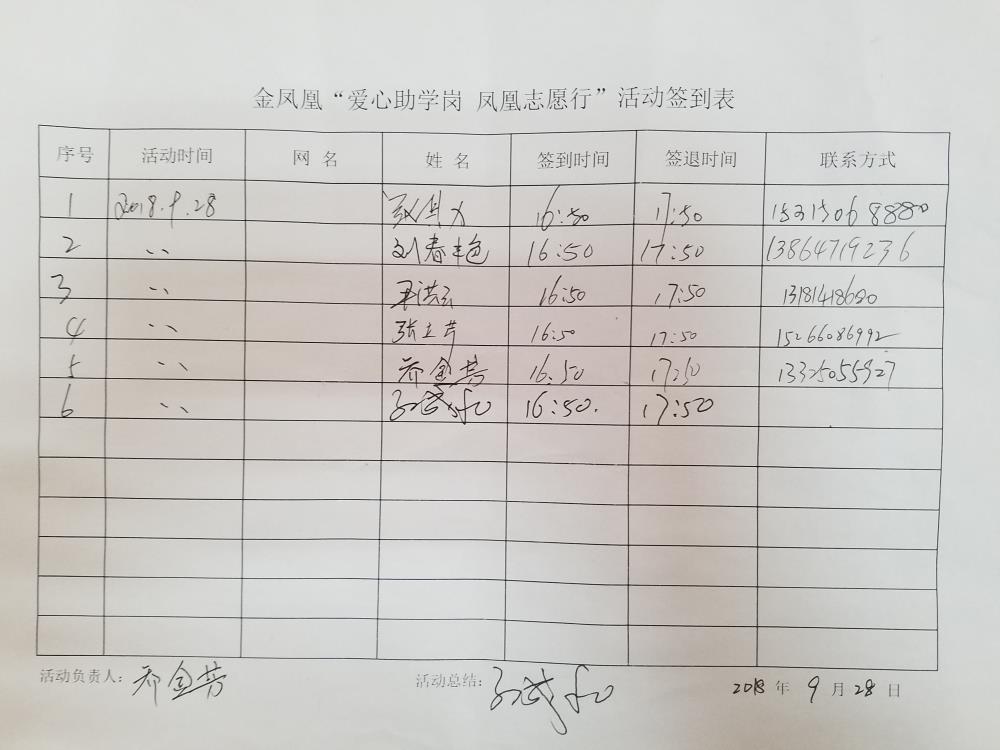 金凤凰“爱心助学岗 凤凰志愿行”活动签到表
序号 活动时间 网 名 姓 名 签到时间 签退时间 联系方式
1 2018.9.28 16:50 17:50 15315068880
2 、、 刘春艳 16:50 17:50 13864719236
3 、、 王洪云 16:50 17:50 13181418680
4 、、 张立芹 16:50 17:50 15266086992
5 、、 乔金芬 16:50 17:50 13325055927
6 、、 16:50. 17:50
活动负责人: 乔金芬 活动总结: 2018 年 9 月 28 日